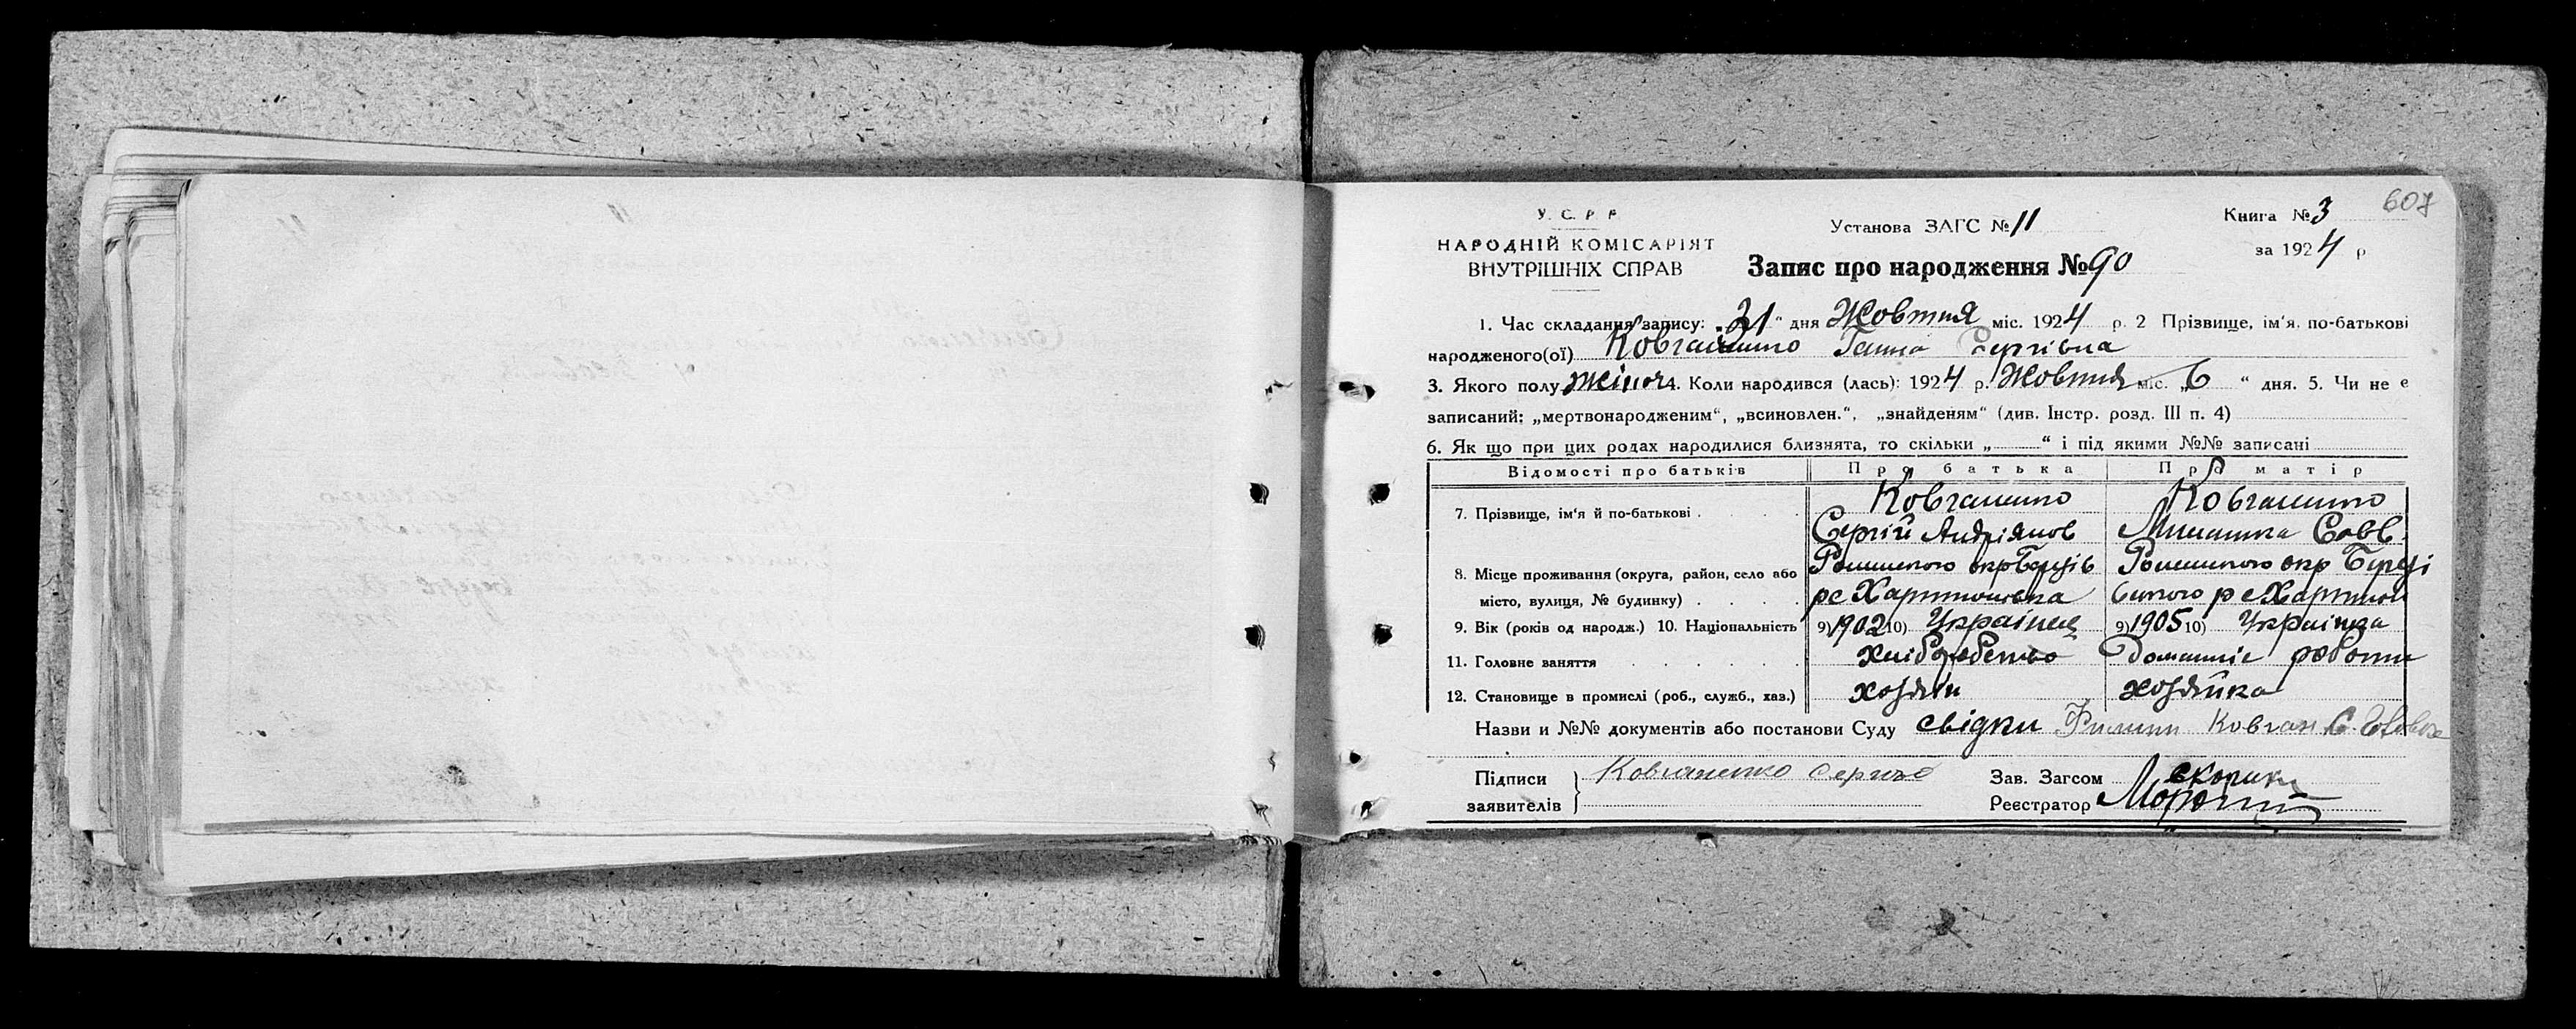 607
У. С. Р. Р.
НАРОДНІЙ КОМІСАРІЯТ
ВНУТРІШНІХ СПРАВ
Установа ЗАГС № 11
Запис про народження № 90
Книга № 3
за 1924 р
1. Час складання запису: „31“ дня Жовтня міс. 1924 р. 2 Прізвище, ім'я, по-батькові
народженого(ої) Ганна Сергівна
3. Якого полу жіноч 4. Коли народився (лась): 1924 р. Жовтня міс. „6“ дня. 5. Чи не є
записаний: „мертвонародженим“, „всиновлен.“, „знайденям“ (див. Інстр. розд. III п. 4)
6. Як що при цих родах народилися близнята, то скільки „ “ і під якими №№ записані
Відомості про батьків Про батька Про матір
7. Прізвище, ім'я й по-батькові Ковганенко Ковганенко
Сергій Андріянов Савв.
8. Місце проживання (округа, район, село або Роменского окр Роменского окр
місто, вулиця, № будинку)
9. Вік (років од народж.) 10. Національність 9) 1902 10) Українец 9) 1905 10) Українка
11. Головне заняття хліборобство Домашнє роботи
12. Становище в промислі (роб., служб., хаз.) хозяїн хозяйка
Назви и №№ документів або постанови Суду свідки Филипп Ковган
Підписи
заявителів
Ковганенко Сергий
Зав. Загсом
Реєстратор